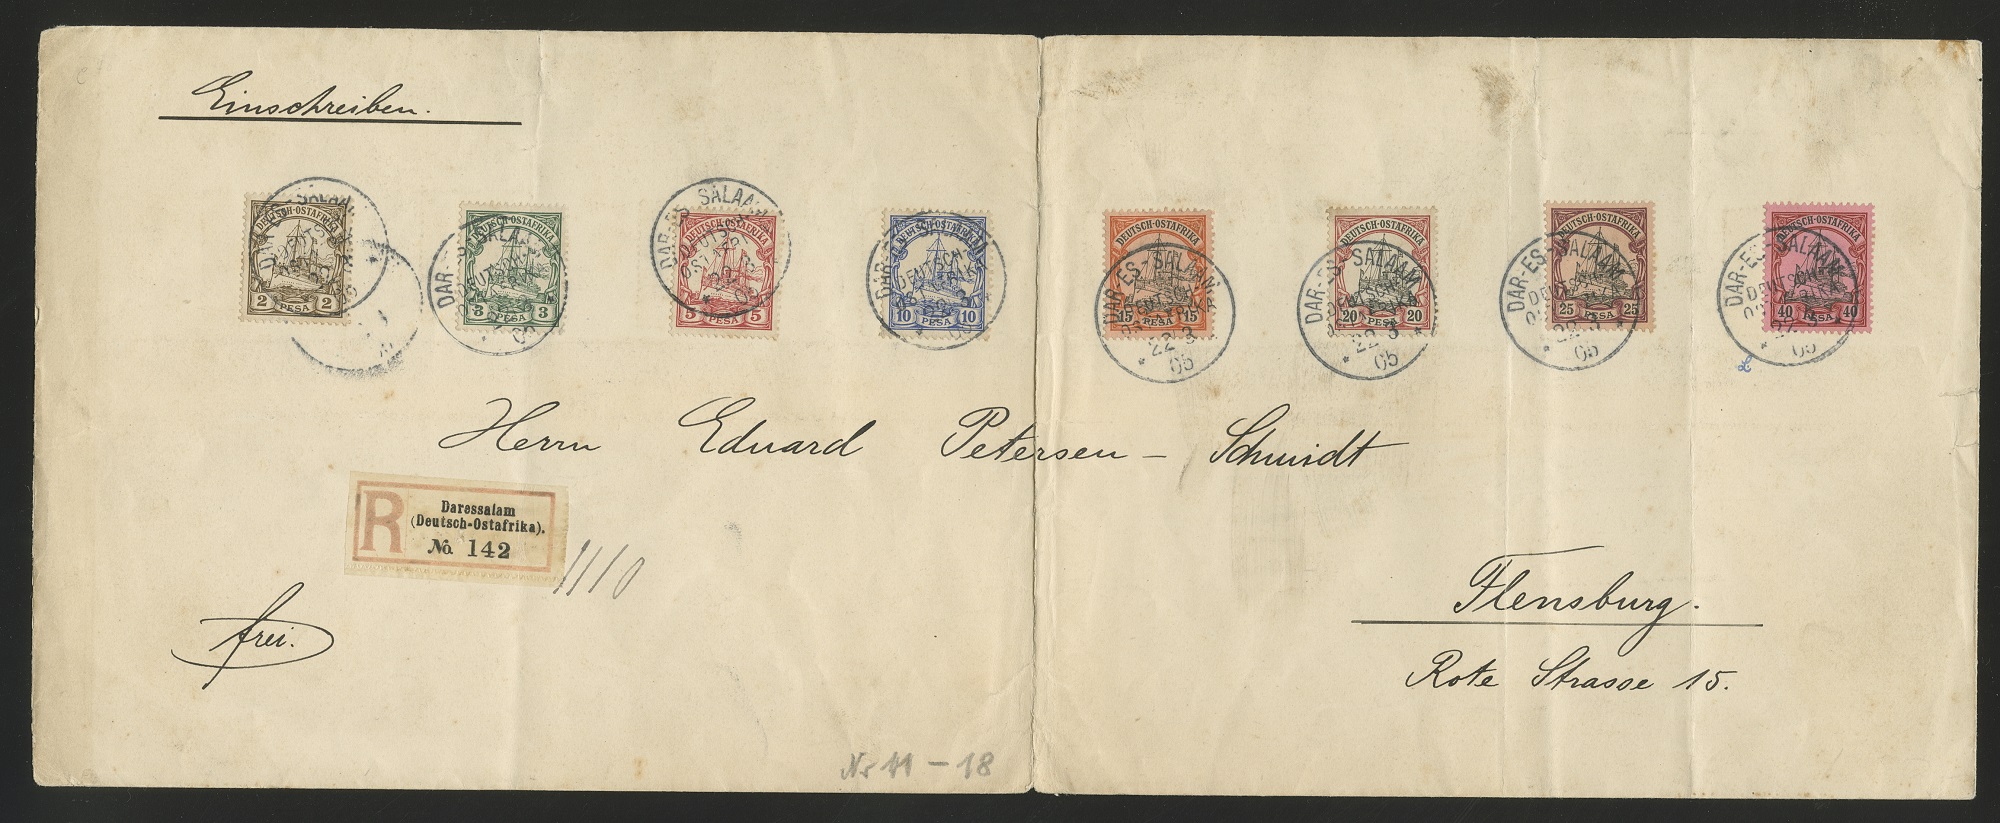 Einschreiben.
DEUTSCH-OSTAFRIKA
2 PESA 2
DEUTSCH-OSTAFRIKA
3 PESA 3
DEUTSCH-OSTAFRIKA
5 PESA 5
DEUTSCH-OSTAFRIKA
10 PESA 10
DEUTSCH-OSTAFRIKA
15 PESA 15
DEUTSCH-OSTAFRIKA
20 PESA 20
DEUTSCH-OSTAFRIKA
25 PESA 25
DEUTSCH-OSTAFRIKA
40 PESA 40
DAR-ES-SALAAM
DEUTSCH-
22 3
05
Herrn Eduard Petersen-Schmidt
R
Daressalam
(Deutsch-Ostafrika).
No. 142
1110
Flensburg.
frei.
Rote Strasse 15.
Nr 11-18